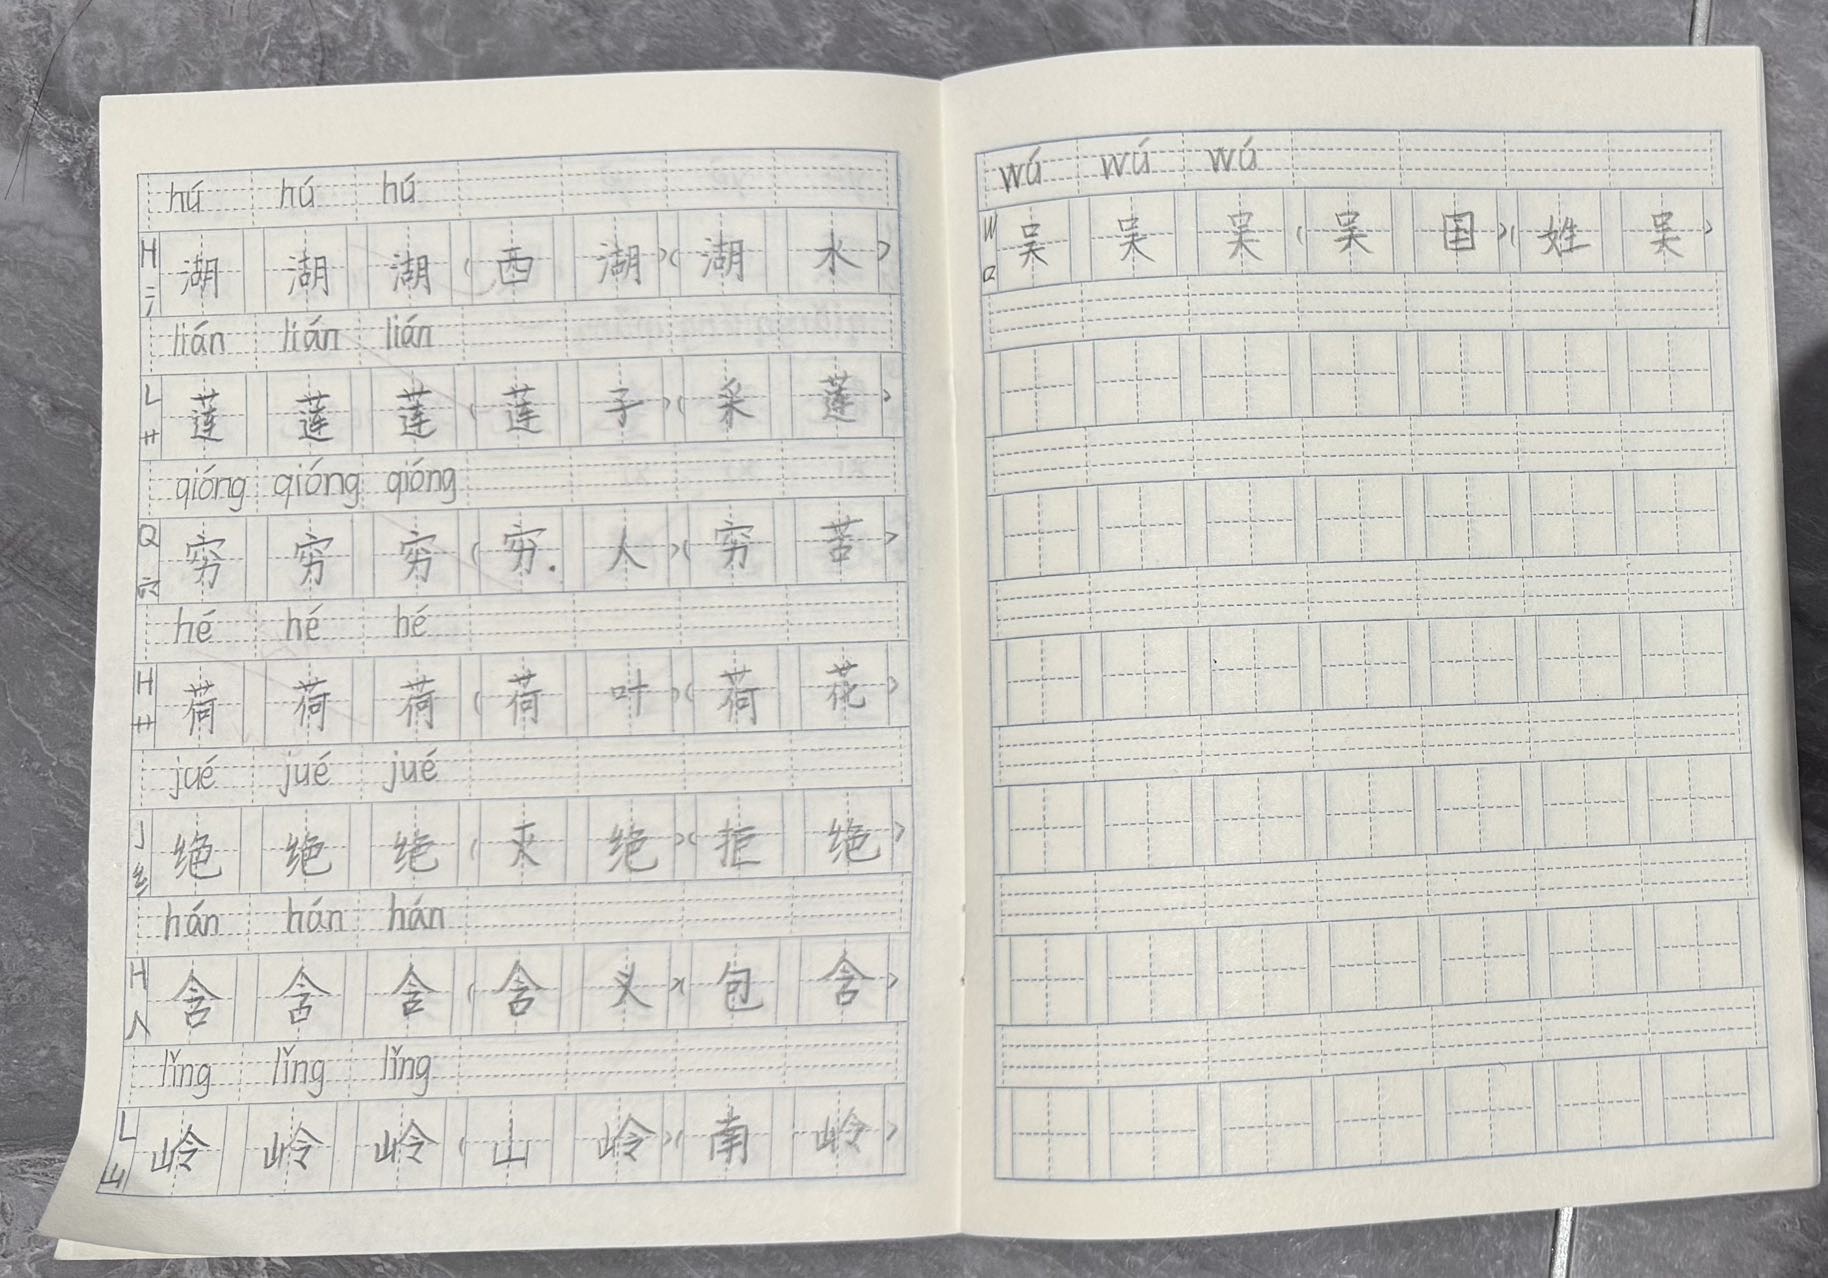 hú hú hú
H 湖 湖 湖 (西 湖)(湖 水)
氵
lián lián lián
L 莲 莲 莲 (莲 子)(采 莲)
艹
qióng qióng qióng
Q 穷 穷 穷 (穷. 人)(穷 苦)
穴
hé hé hé
H 荷 荷 荷 (荷 叶)(荷 花)
艹
jué jué jué
J 绝 绝 绝 (灭 绝)(拒 绝)
纟
hán hán hán
H 含 含 含 (含 义)(包 含)
人
lǐng lǐng lǐng
L 岭 岭 岭 (山 岭)(南 岭)
山
wú wú wú
W 吴 吴 吴 (吴 国)(姓 吴)
口